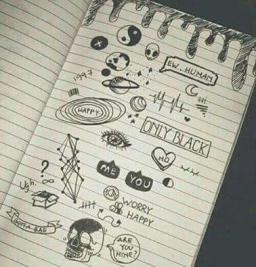 EW.. HUMAN
1997
HAPPY
ONLY BLACK
NO
ME
YOU
?
Ugh.
WORRY
HAPPY
ARE
YOU
MINE?